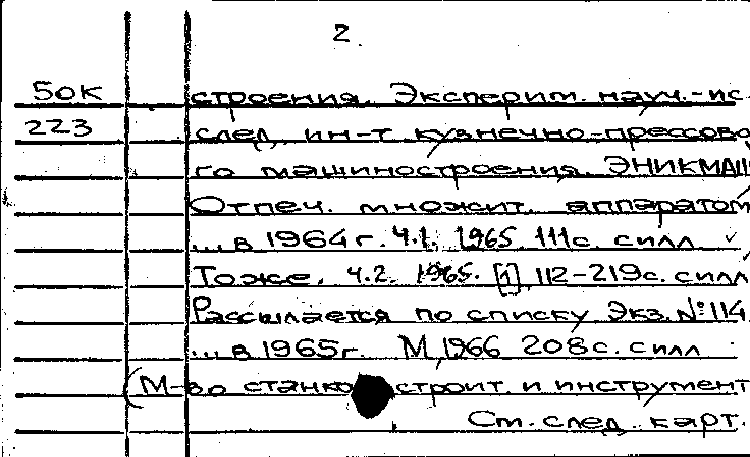 2.
50К строения. Эксперим. науч.-ис-
223 след. ин-т кузнечно-прессово
го машиностроения. ЭНИКМАШ
Отпеч. множит. аппаратом
...в 1964 г. Ч.1. 1965. 111с. с илл
Тоже. Ч.2. 1965. [1], 112-219с. с илл
Рассылается по списку Экз. №114
...в 1965г. М, 1966 208с. с илл
(М-во станко строит. и инструмент
См. след. карт.